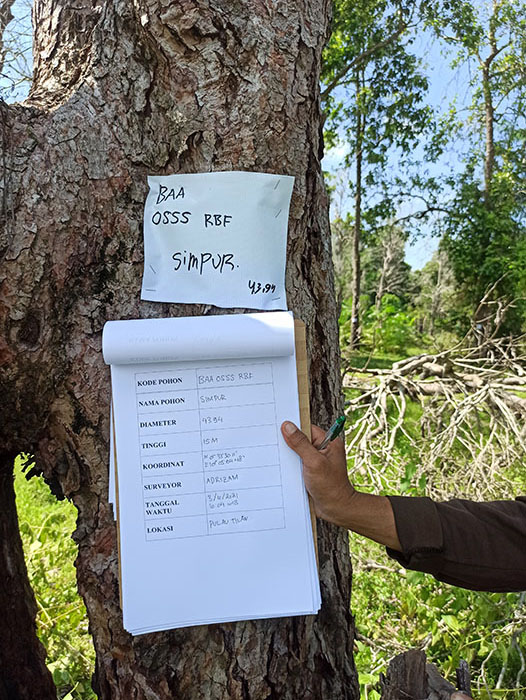 BAA
OSSS RBF
SIMPUR.
43.94
KODE POHON BAA OSSS RBF
NAMA POHON SIMPUR
DIAMETER 43.94
TINGGI 15 M
KOORDINAT
SURVEYOR ADRIZAM
TANGGAL
WAKTU
LOKASI PULAU TILAN